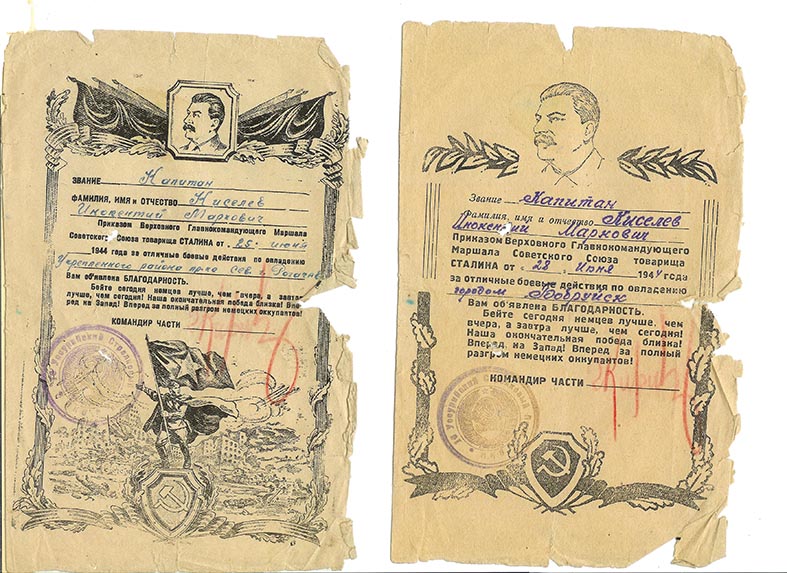 ЗВАНИЕ Капитан
ФАМИЛИЯ, ИМЯ и ОТЧЕСТВО Киселев
Инокентий Маркович
Приказом Верховного Главнокомандующего Маршала
Советского Союза товарища СТАЛИНА от „ 25 " июня
1944 года за отличные боевые действия по овладению
Укрепленного района пр-ка Сев. г. Рогачев
Вам об'явлена БЛАГОДАРНОСТЬ.
Бейте сегодня немцев лучше, чем вчера, а завтра
лучше, чем сегодня! Наша окончательная победа близка! Впе-
ред на Запад! Вперед за полный разгром немецких оккупантов!
КОМАНДИР ЧАСТИ
Звание Капитан
Фамилия, имя и отчество Киселев
Инокентий Маркович
Приказом Верховного Главнокомандующего
Маршала Советского Союза товарища
СТАЛИНА от „ 28 " Июня 1944 года
за отличные боевые действия по овладению
городом Бобруйск
Вам об'явлена БЛАГОДАРНОСТЬ.
Бейте сегодня немцев лучше, чем
вчера, а завтра лучше, чем сегодня!
Наша окончательная победа близка!
Вперед на Запад! Вперед за полный
разгром немецких оккупантов!
КОМАНДИР ЧАСТИ